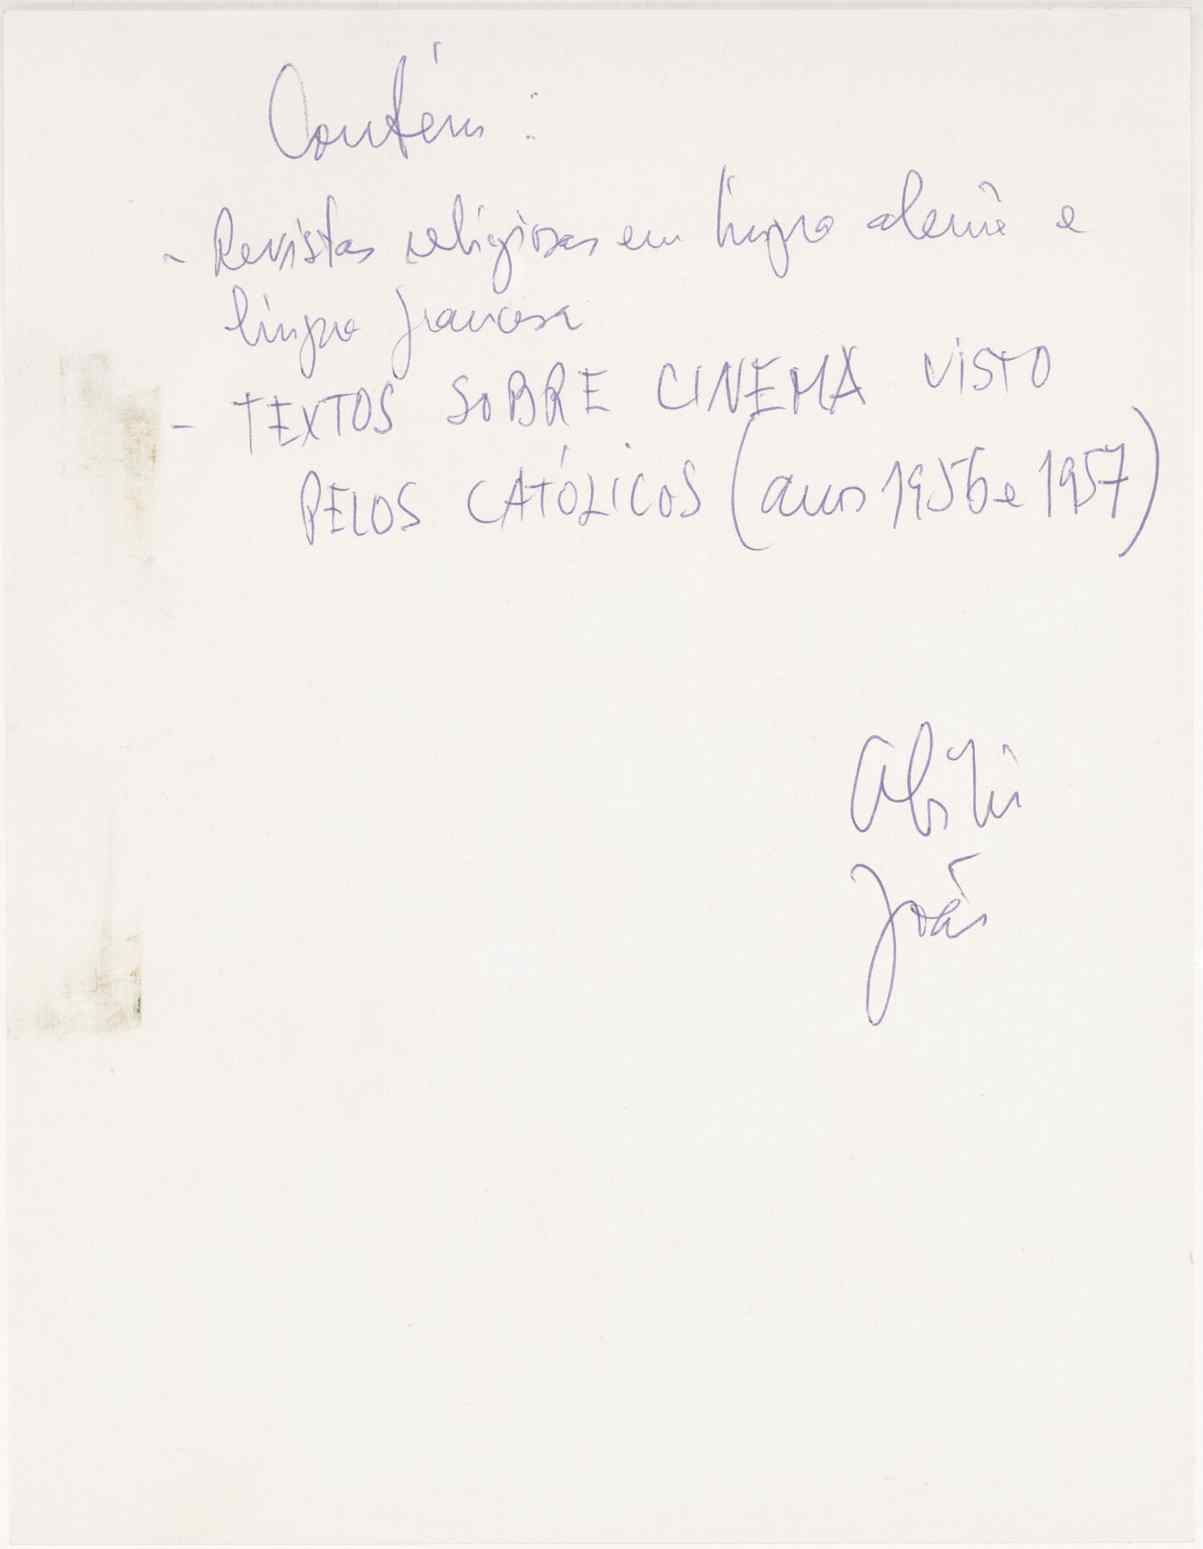 Contém :
- Revistas religiosas em língua alemã e
língua francesa
- TEXTOS SOBRE CINEMA VISTO
PELOS CATÓLICOS (anos 1956 e 1957)
João